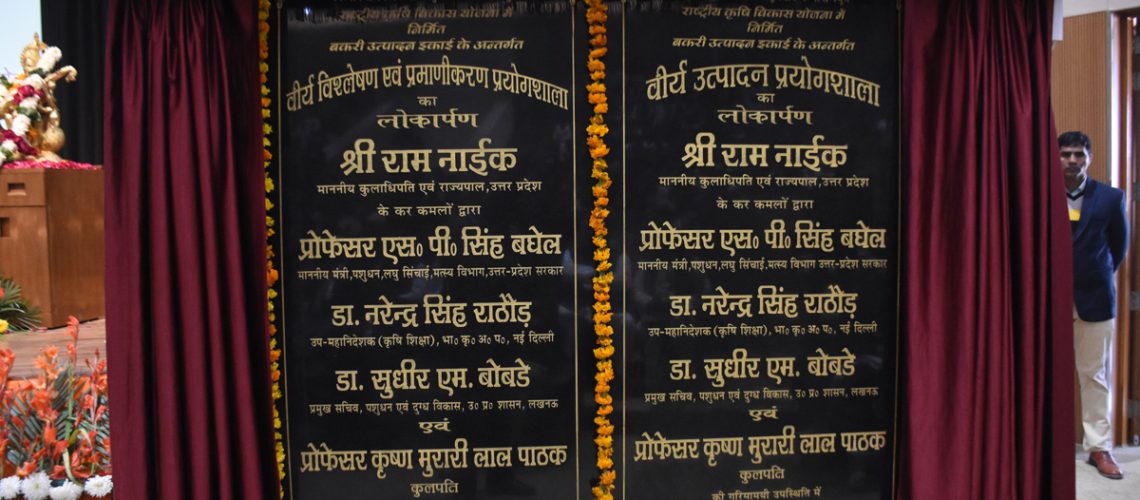 राष्ट्रीय कृषि विकास योजना में
निर्मित
बकरी उत्पादन इकाई के अन्तर्गत
वीर्य विश्लेषण एवं प्रमाणीकरण प्रयोगशाला
का
लोकार्पण
श्री राम नाईक
माननीय कुलाधिपति एवं राज्यपाल,उत्तर प्रदेश
के कर कमलों द्वारा
प्रोफेसर एस० पी० सिंह बघेल
माननीय मंत्री,पशुधन,लघु सिंचाई,मत्स्य विभाग,उत्तर-प्रदेश सरकार
डा. नरेन्द्र सिंह राठौड़
उप-महानिदेशक (कृषि शिक्षा), भा० कृ० अ० प०, नई दिल्ली
डा. सुधीर एम. बोबडे
प्रमुख सचिव, पशुधन एवं दुग्ध विकास, उ० प्र० शासन, लखनऊ
एवं
प्रोफेसर कृष्ण मुरारी लाल पाठक
कुलपति
राष्ट्रीय कृषि विकास योजना में
निर्मित
बकरी उत्पादन इकाई के अन्तर्गत
वीर्य उत्पादन प्रयोगशाला
का
लोकार्पण
श्री राम नाईक
माननीय कुलाधिपति एवं राज्यपाल,उत्तर प्रदेश
के कर कमलों द्वारा
प्रोफेसर एस० पी० सिंह बघेल
माननीय मंत्री,पशुधन,लघु सिंचाई,मत्स्य विभाग उत्तर-प्रदेश सरकार
डा. नरेन्द्र सिंह राठौड़
उप-महानिदेशक (कृषि शिक्षा), भा० कृ० अ० प०, नई दिल्ली
डा. सुधीर एम. बोबडे
प्रमुख सचिव, पशुधन एवं दुग्ध विकास, उ० प्र० शासन, लखनऊ
एवं
प्रोफेसर कृष्ण मुरारी लाल पाठक
कुलपति
की गरिमामयी उपस्थिति में